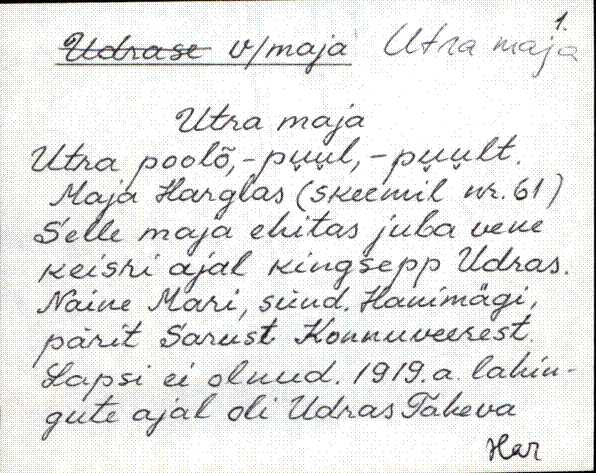 1.
Udrase v/maja Utra maja
Utra maja
Utra poolõ, -puul, -puult.
Maja Harglas (skeemil nr. 61)
Selle maja ehitas juba vene
keisri ajal kingsepp Udras.
Naine Mari, sünd. Hanimägi,
pärit Sarust Konnuveerest.
Lapsi ei olnud. 1919. a. lahin-
gute ajal oli Udras Taheva
Har